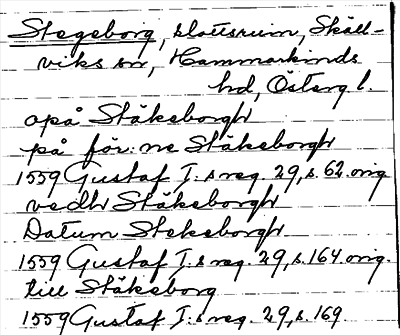 Stegeborg, slottsruin, Skäll-
viks sn, Hammarkinds
hd, Östergl.
opå Stäkeborgh
på för:ne Stäkeborgh
1559 Gustaf I:s reg. 29, s. 62. orig
vedh Stäkeborgh
Datum Stekeborgh
1559 Gustaf I:s reg. 29, s. 164. orig.
till Stäkeborg
1559 Gustaf I:s reg. 29, s. 169